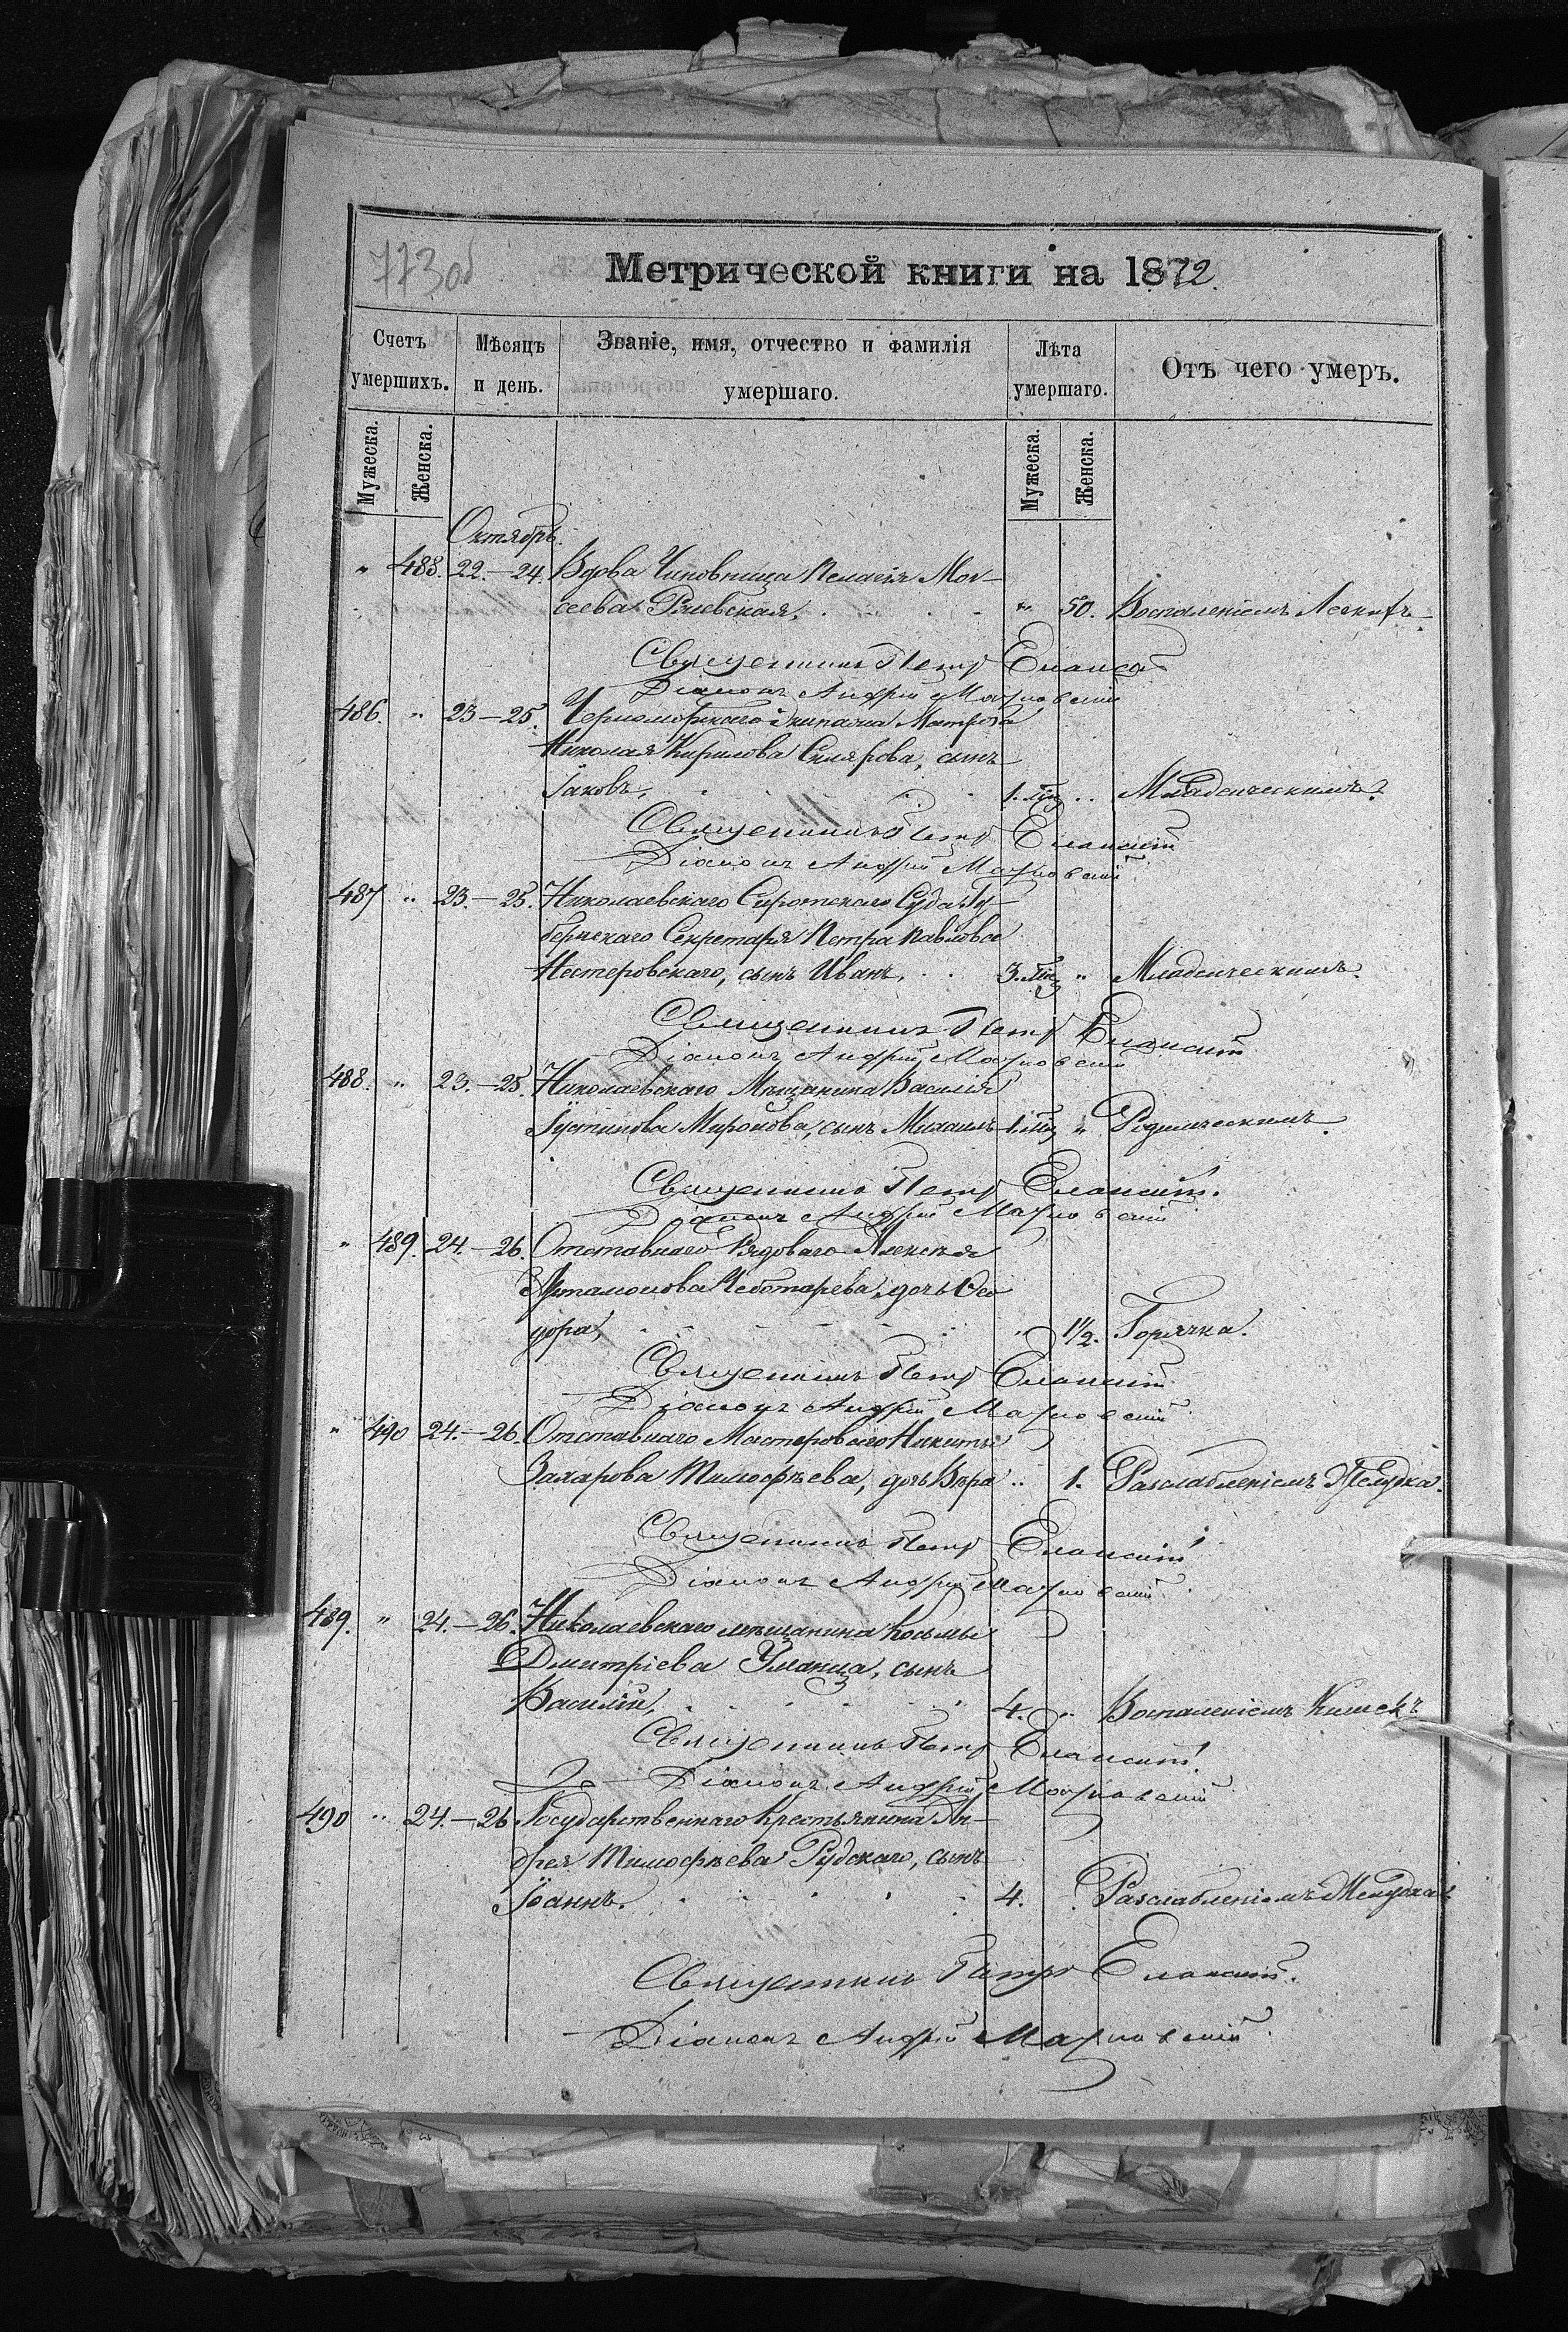 773об
Метрической книги на 1872.
Счетъ умершихъ.
Мѣсяцъ и день.
Званіе, имя, отчество и фамилія умершаго.
Лѣта умершаго.
Отъ чего умеръ.
Мужеска.
Женска.
Мужеска.
Женска.
Октябрь.
" 488. 22.—24. Вдова Чиновница Пелагія Мои-
сеева " 50. Воспаленіемъ Легкихъ.
Священникъ Петръ
Діаконъ Андрей
486. " 23—25. Черноморскаго Экипажа Матроса
Николая Кирилова Склярова, сынъ
Іаковъ, 1. " Младенческимъ.
Священникъ Петръ
Діаконъ Андрей
487 " 23.—25. Николаевскаго Сиротскаго Суда Гу-
бернскаго Секретаря Петра Павлова
Нестеровскаго, сынъ Иванъ, 3. " Младенческимъ.
Священникъ Петръ
Діаконъ Андрей
488. " 23.—25. Николаевскаго Мѣщанина Василія
Іустинова Миронова, сынъ Михаилъ " Родимческимъ.
Священникъ Петръ
Діаконъ Андрей
" 489. 24.—26. Отставнаго Рядоваго Алексѣя
Артамонова Чеботарева, дочь Ѳео
дора, " 1½. Горячка.
Священникъ Петръ
Діаконъ Андрей
" 490 24.—26. Отставнаго Мастероваго Никиты
Захарова Тимофѣева, дочь Вѣра " 1. Разслабленіемъ Желудка.
Священникъ Петръ
Діаконъ Андрей
489. " 24.—26. Николаевскаго мѣщанина Косьмы
Дмитріева Уманца, сынъ
Василій, 4. " Воспаленіемъ Кишекъ
Священникъ Петръ
Діаконъ Андрей
490 " 24.—26 Государственнаго Крестьянина Ан-
дрея Тимофѣева Рудскаго, сынъ
Іоаннъ. 4. Разслабленіемъ Желудка.
Священникъ Петръ
Діаконъ Андрей